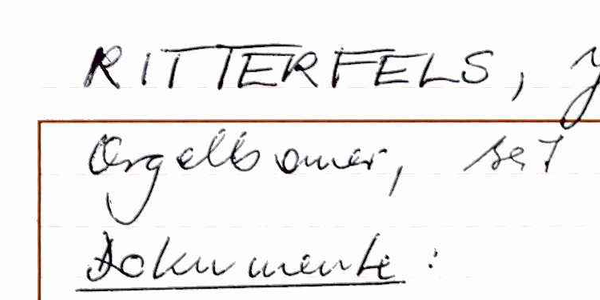 RITTERFELS, J
Orgelbauer, seit
Dokumente: